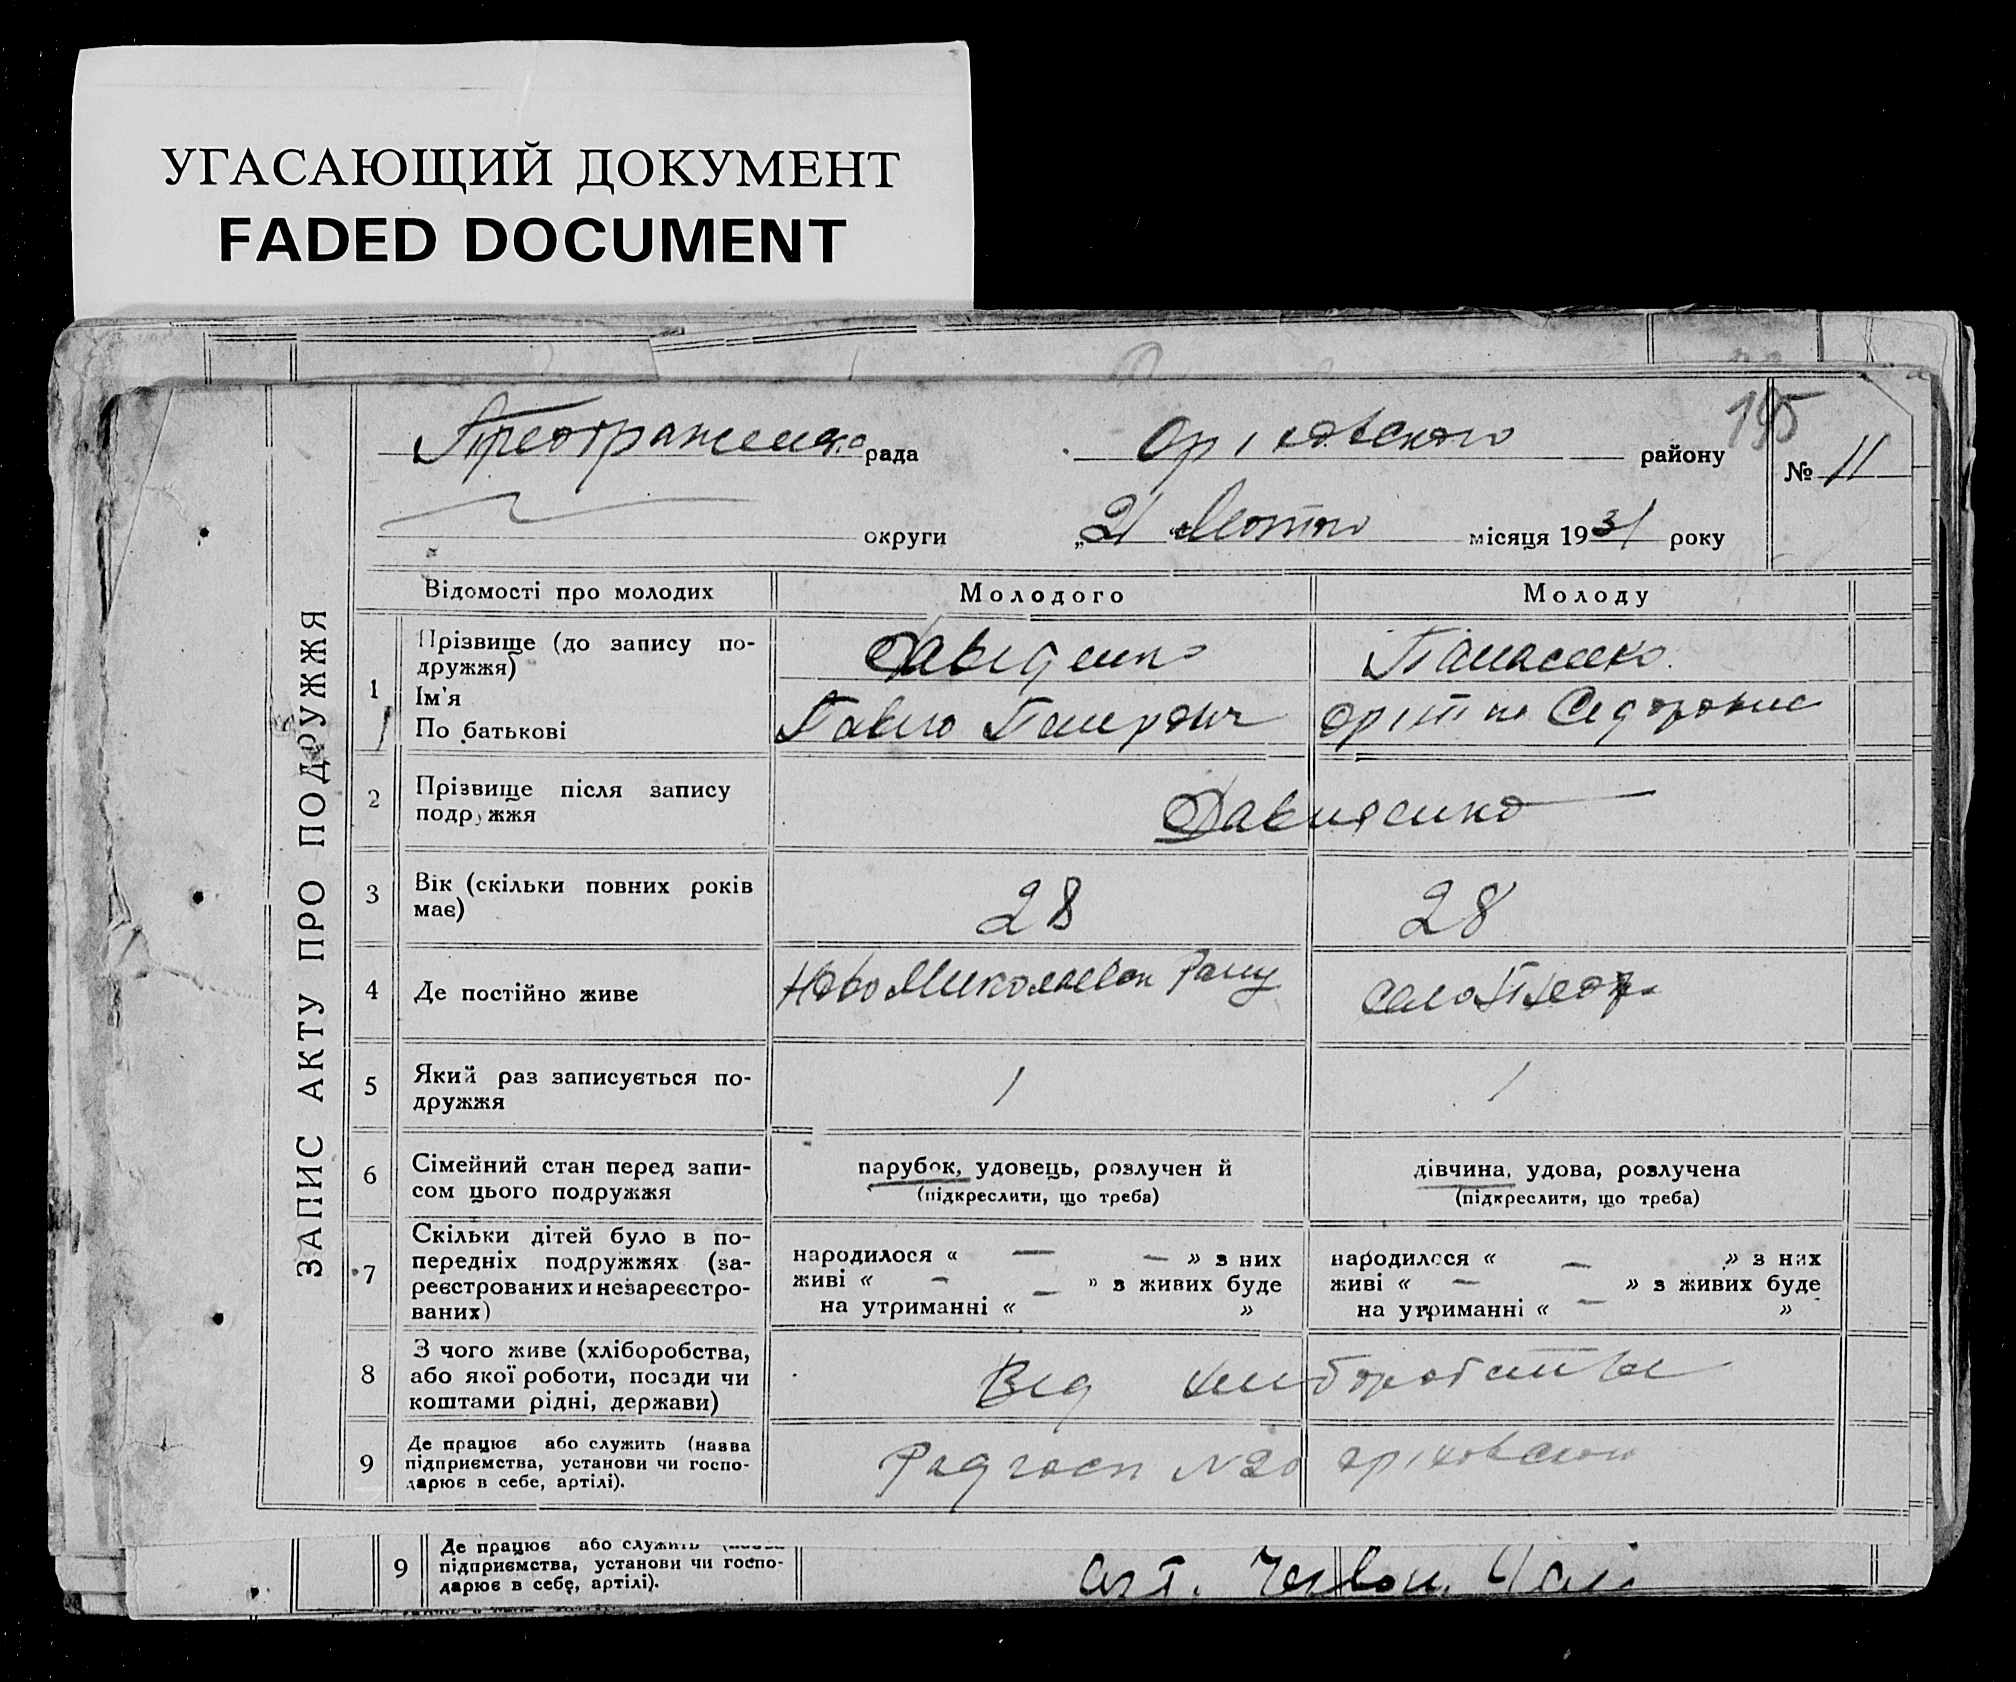 УГАСАЮЩИЙ ДОКУМЕНТ
FADED DOCUMENT
195
рада Оріховского району № 11
округи „21 Лютого місяця 1931 року
ЗАПИС АКТУ ПРО ПОДРУЖЖЯ
Відомості про молодих Молодого Молоду
1 Прізвище (до запису по-
дружжя)
Ім'я
По батькові
Давиденко Панасенко
Павло
2 Прізвище після запису
подружжя
Давиденко
3 Вік (скільки повних років
має)
28 28
4 Де постійно живе
Село
5 Який раз записується по-
дружжя
1 1
6 Сімейний стан перед запи-
сом цього подружжя
парубок, удовець, розлучен й
(підкреслити, що треба)
дівчина, удова, розлучена
(підкреслити, що треба)
7 Скільки дітей було в по-
передніх подружжях (за-
реєстрованих и незареєстро-
ваних)
народилося « — — » з них
живі « — » з живих буде
на утриманні « — »
народилося « — » з них
живі « — » з живих буде
на утриманні « — »
8 З чого живе (хліборобства,
або якої роботи, посади чи
коштами рідні, держави)
Від
9 Де працює або служить (назва
підприємства, установи чи госпо-
дарює в себе, артілі).
Радгосп N20
9 Де працює або служить
підприємства, установи чи госпо-
дарює в себе, артілі).
арт.